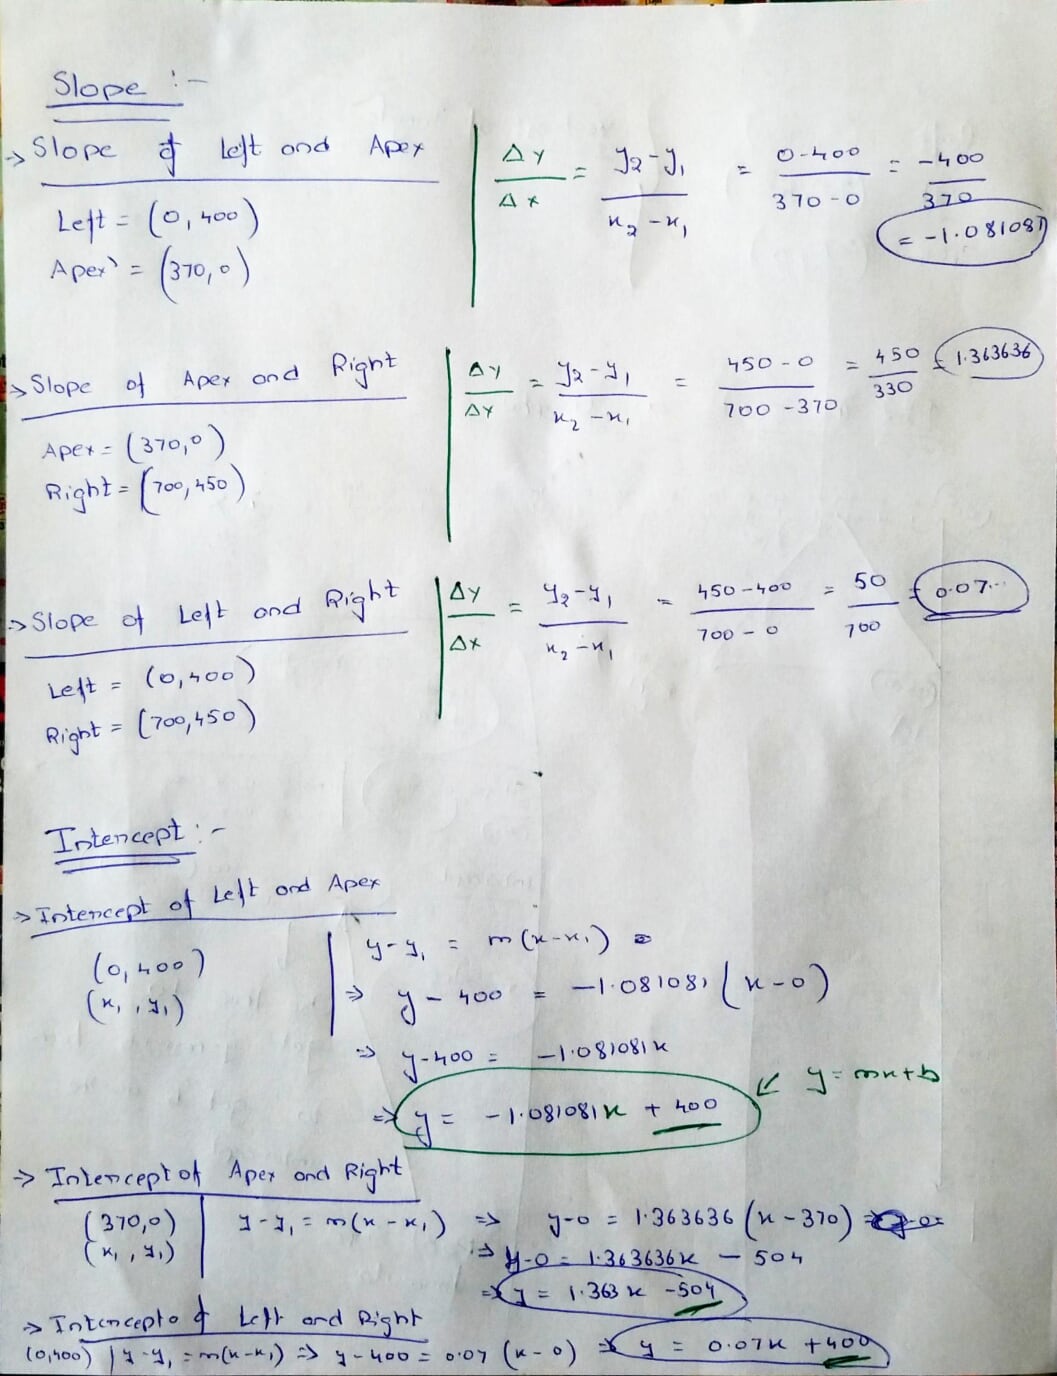 Slope :-
→ Slope of Left and Apex
Left = (0, 400)
Apex = (370, 0)
Δy/Δx = y₂-y₁/x₂-x₁ = 0-400/370-0 = -400/370
= -1.081081
→ Slope of Apex and Right
Apex = (370, 0)
Right = (700, 450)
Δy/Δx = y₂-y₁/x₂-x₁ = 450-0/700-370 = 450/330 = 1.363636
→ Slope of Left and Right
Left = (0, 400)
Right = (700, 450)
Δy/Δx = y₂-y₁/x₂-x₁ = 450-400/700-0 = 50/700 = 0.07..
Intercept :-
→ Intercept of Left and Apex
(0, 400)
(x₁, y₁)
y-y₁ = m(x-x₁)
⇒ y-400 = -1.081081(x-0)
⇒ y-400 = -1.081081x
⇒ y = -1.081081x + 400
y = mx+b
→ Intercept of Apex and Right
(370, 0)
(x₁, y₁)
y-y₁ = m(x-x₁) ⇒ y-0 = 1.363636(x-370)
⇒ y-0 = 1.363636x - 504
⇒ y = 1.363x - 504
→ Intercept of Left and Right
(0, 400) | y-y₁ = m(x-x₁) ⇒ y-400 = 0.07(x-0) ⇒ y = 0.07x + 400